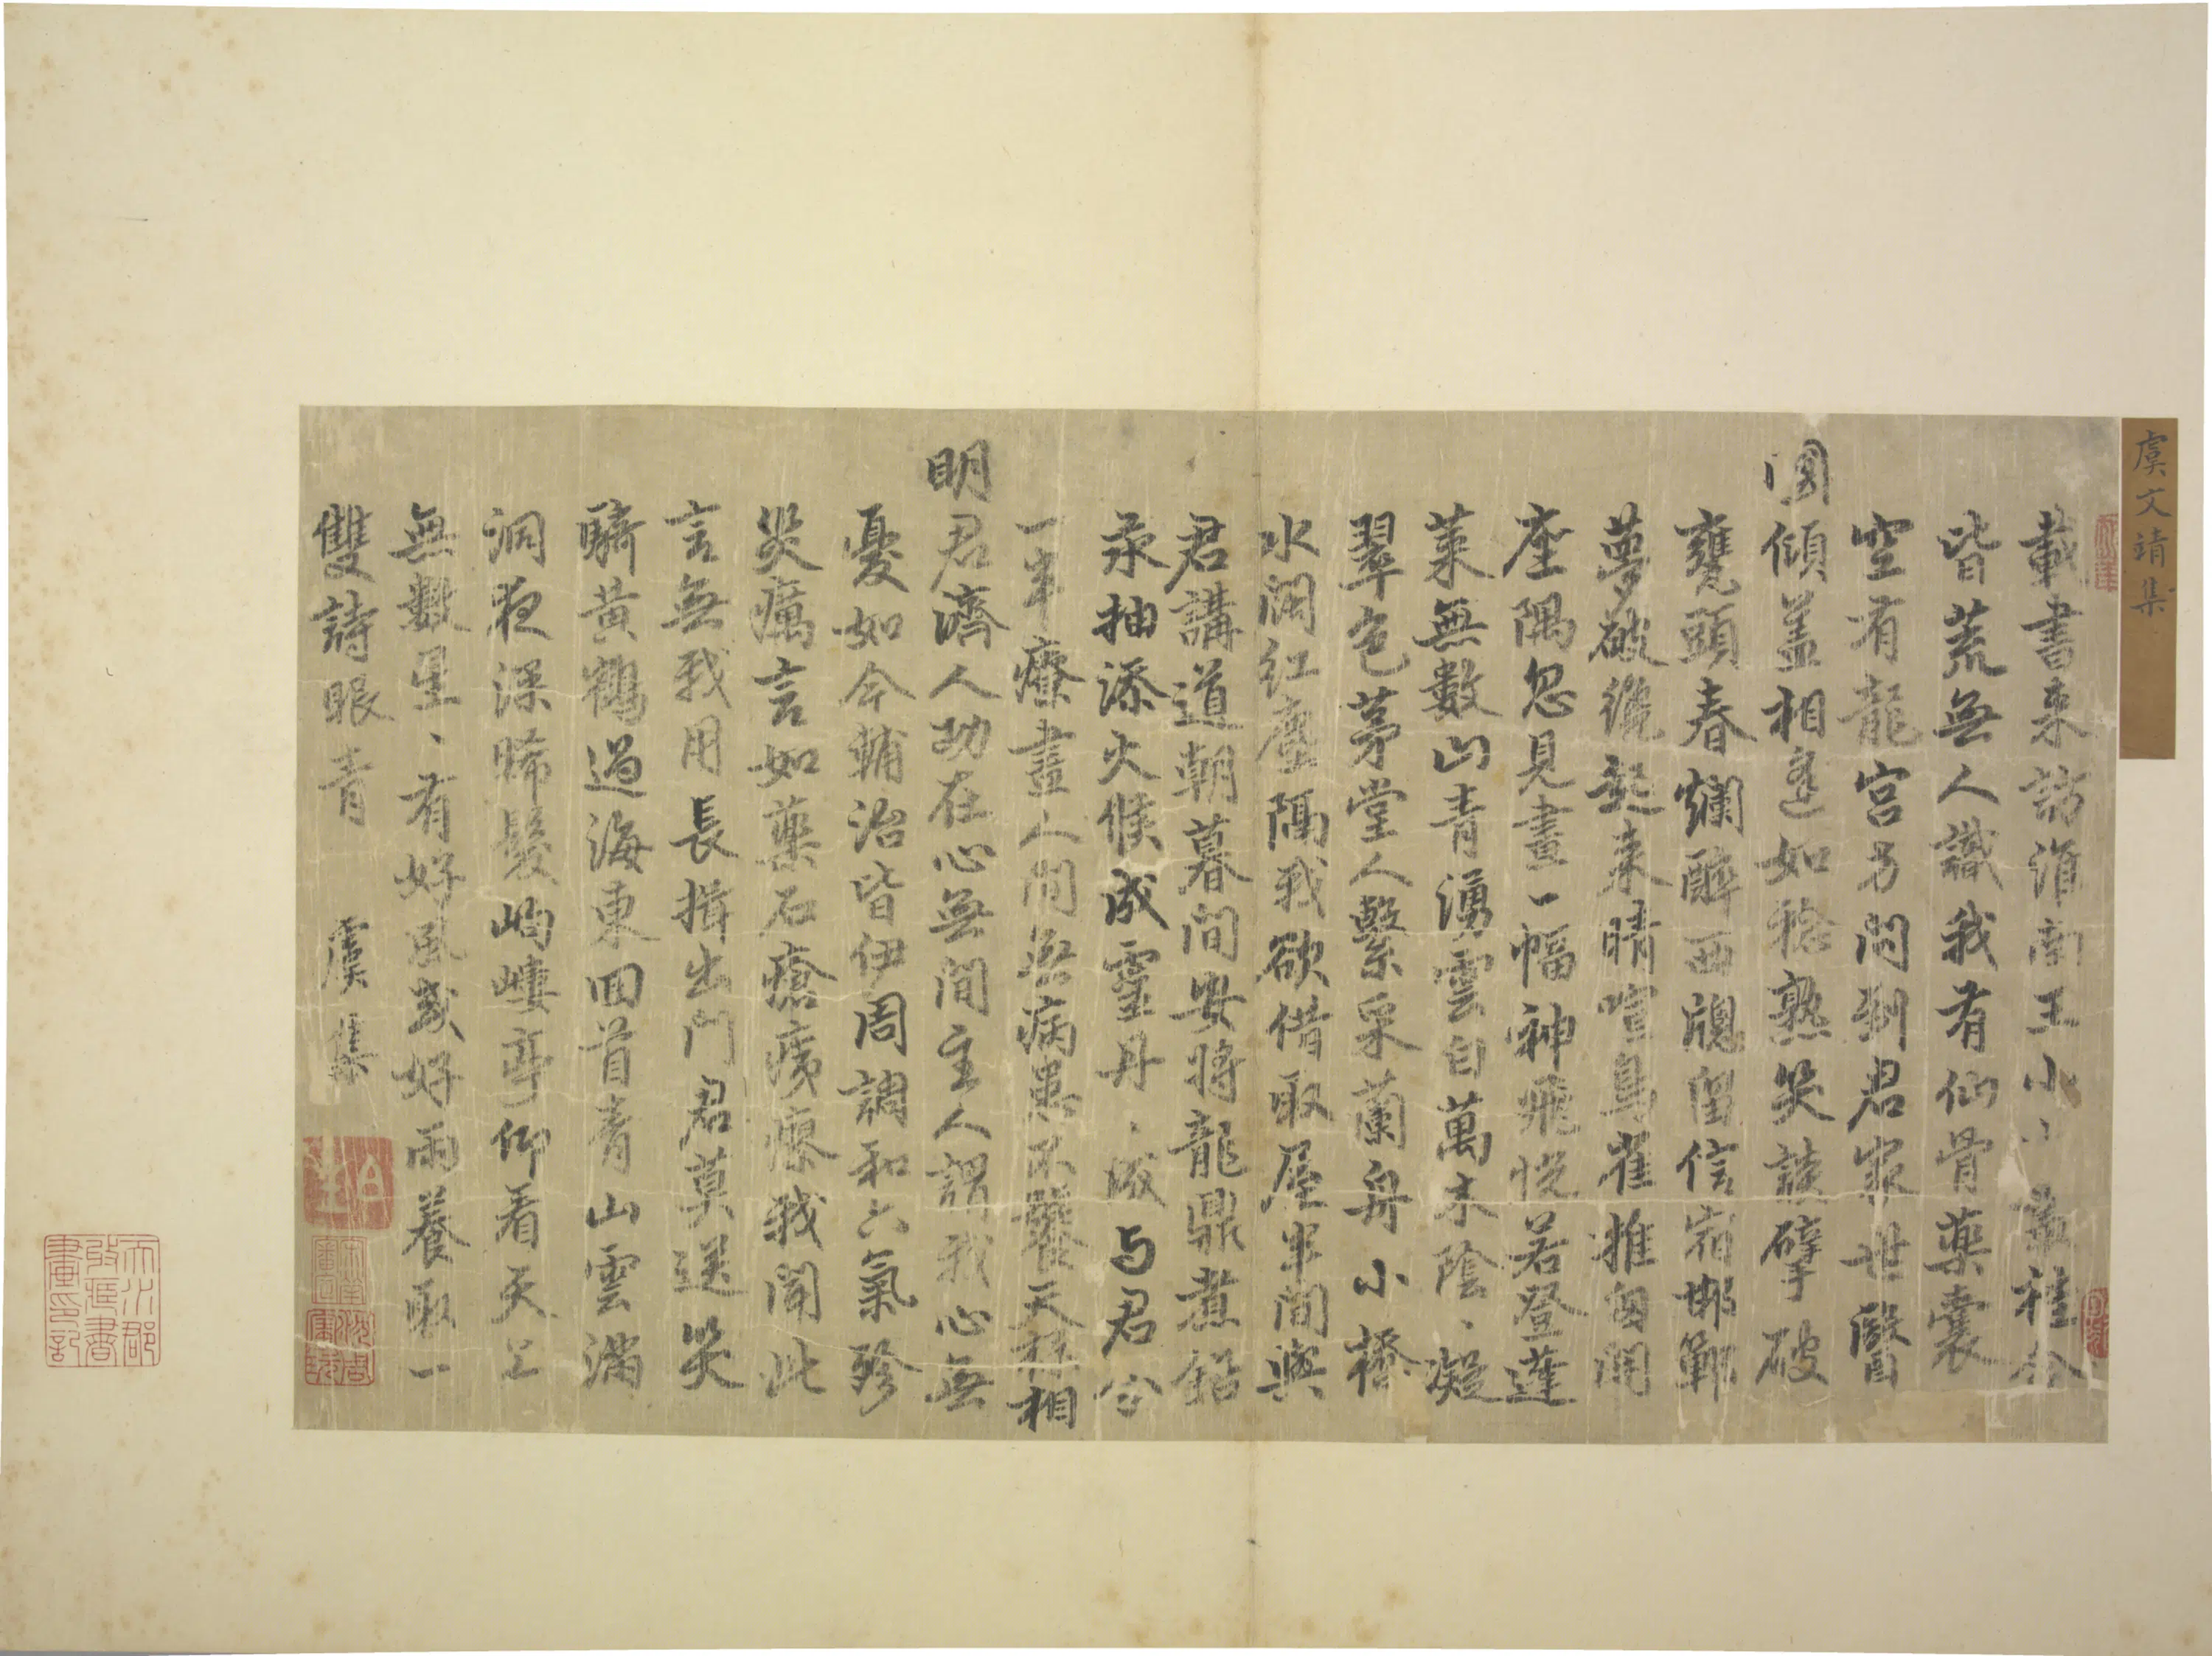 虞文靖集
載書來訪湏南王小小叢桂今
皆荒無人識我有仙骨藥囊
空有龍宮方問到君家世醫
國傾蓋相逢如稔熟笑談擘破
甕頭春爛醉西牕留信宿邯鄲
夢破纔起來晴喧鳥雀推囱開
座隅忽見畫一幅神飛恍若登蓬
萊無數山青湧雲白萬木陰、凝
翠色茅堂人繫采蘭舟小橋
水闊紅塵隔我欲借取屋半間與
君講道朝暮間安將龍鼎煮鉛
汞抽添火候成靈丹、成与君分
一半療盡人間無病患不饕天
相
明君濟人功在心無間主人謂我心無
憂如今輔治皆伊周調和六氣殄
災癘言如藥石瘡痍瘳我聞此
言無我用長揖出門君莫送笑
騎黃鶴過海東回首青山雲滿
洞夜深晞髮岣嶁亭仰看天上
無數星、有好風或好雨養取一
雙詩眼青 虞集